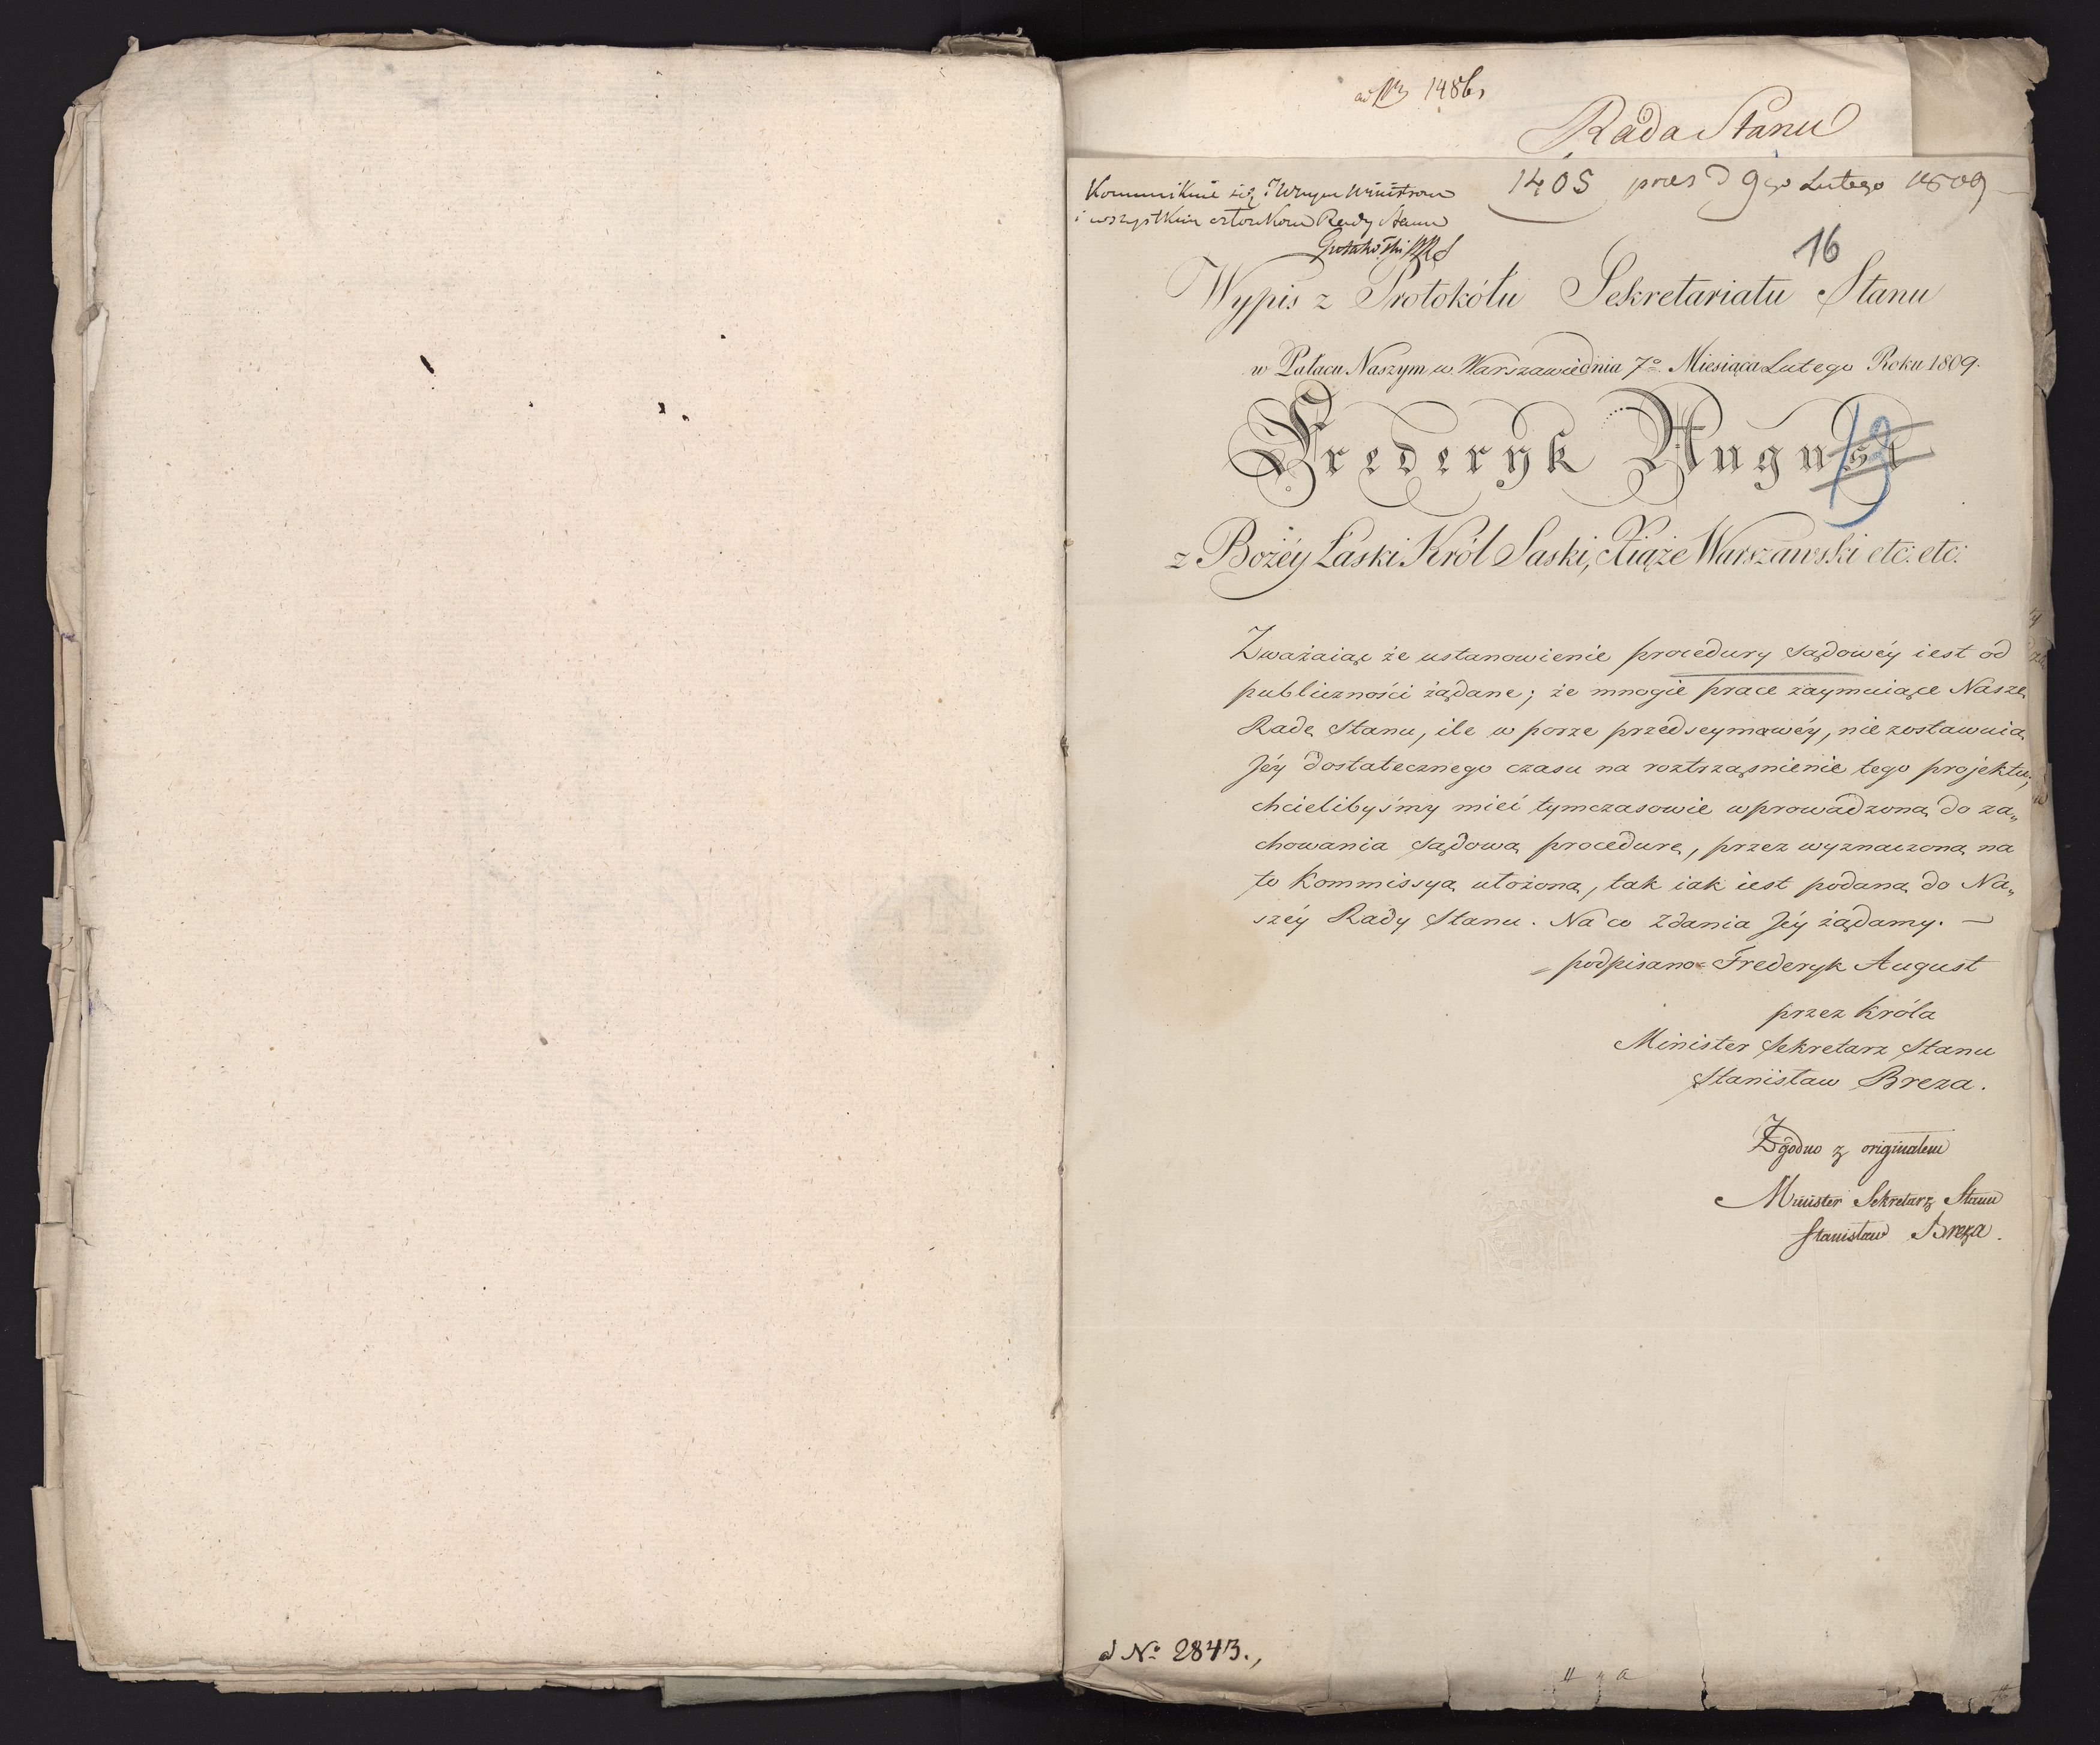 ad N 1486
Rada Stanu
1405 pras d 9go Lutego 1809
Kommunikuie się Ministrom
i wszystkim członkom Rady Stanu
16
Wypis z Protokółu Sekretariatu Stanu
w Pałacu Naszym w Warszawie dnia 7o Miesiąca Lutego Roku 1809.
Frederyk August
13
z Bożéy Łaski Król Saski, Xiąże Warszawski etc: etc:
Zważaiąc że ustanowienie procedury sądowéy iest od
publiczności żądane; że mnogie prace zaymuiące Naszę
Radę Stanu, ile w porze przedseymowéy, nie zostawuią
Jéy dostatecznego czasu na roztrząśnienie tego projektu;
chcielibyśmy mieć tymczasowie wprowadzoną do za„
chowania sądową procedurę, przez wyznaczoną na
to Kommissyą ułożoną, tak iak iest podana do Na„
széy Rady Stanu. Na co Zdania Jéy żądamy. —
podpisano = Frederyk August
przez Króla
Minister Sekretarz Stanu
Stanisław Breza.
Zgodno z originałem
Minister Sekretarz Stanu
Stanisław Breza.
d No 2843.,